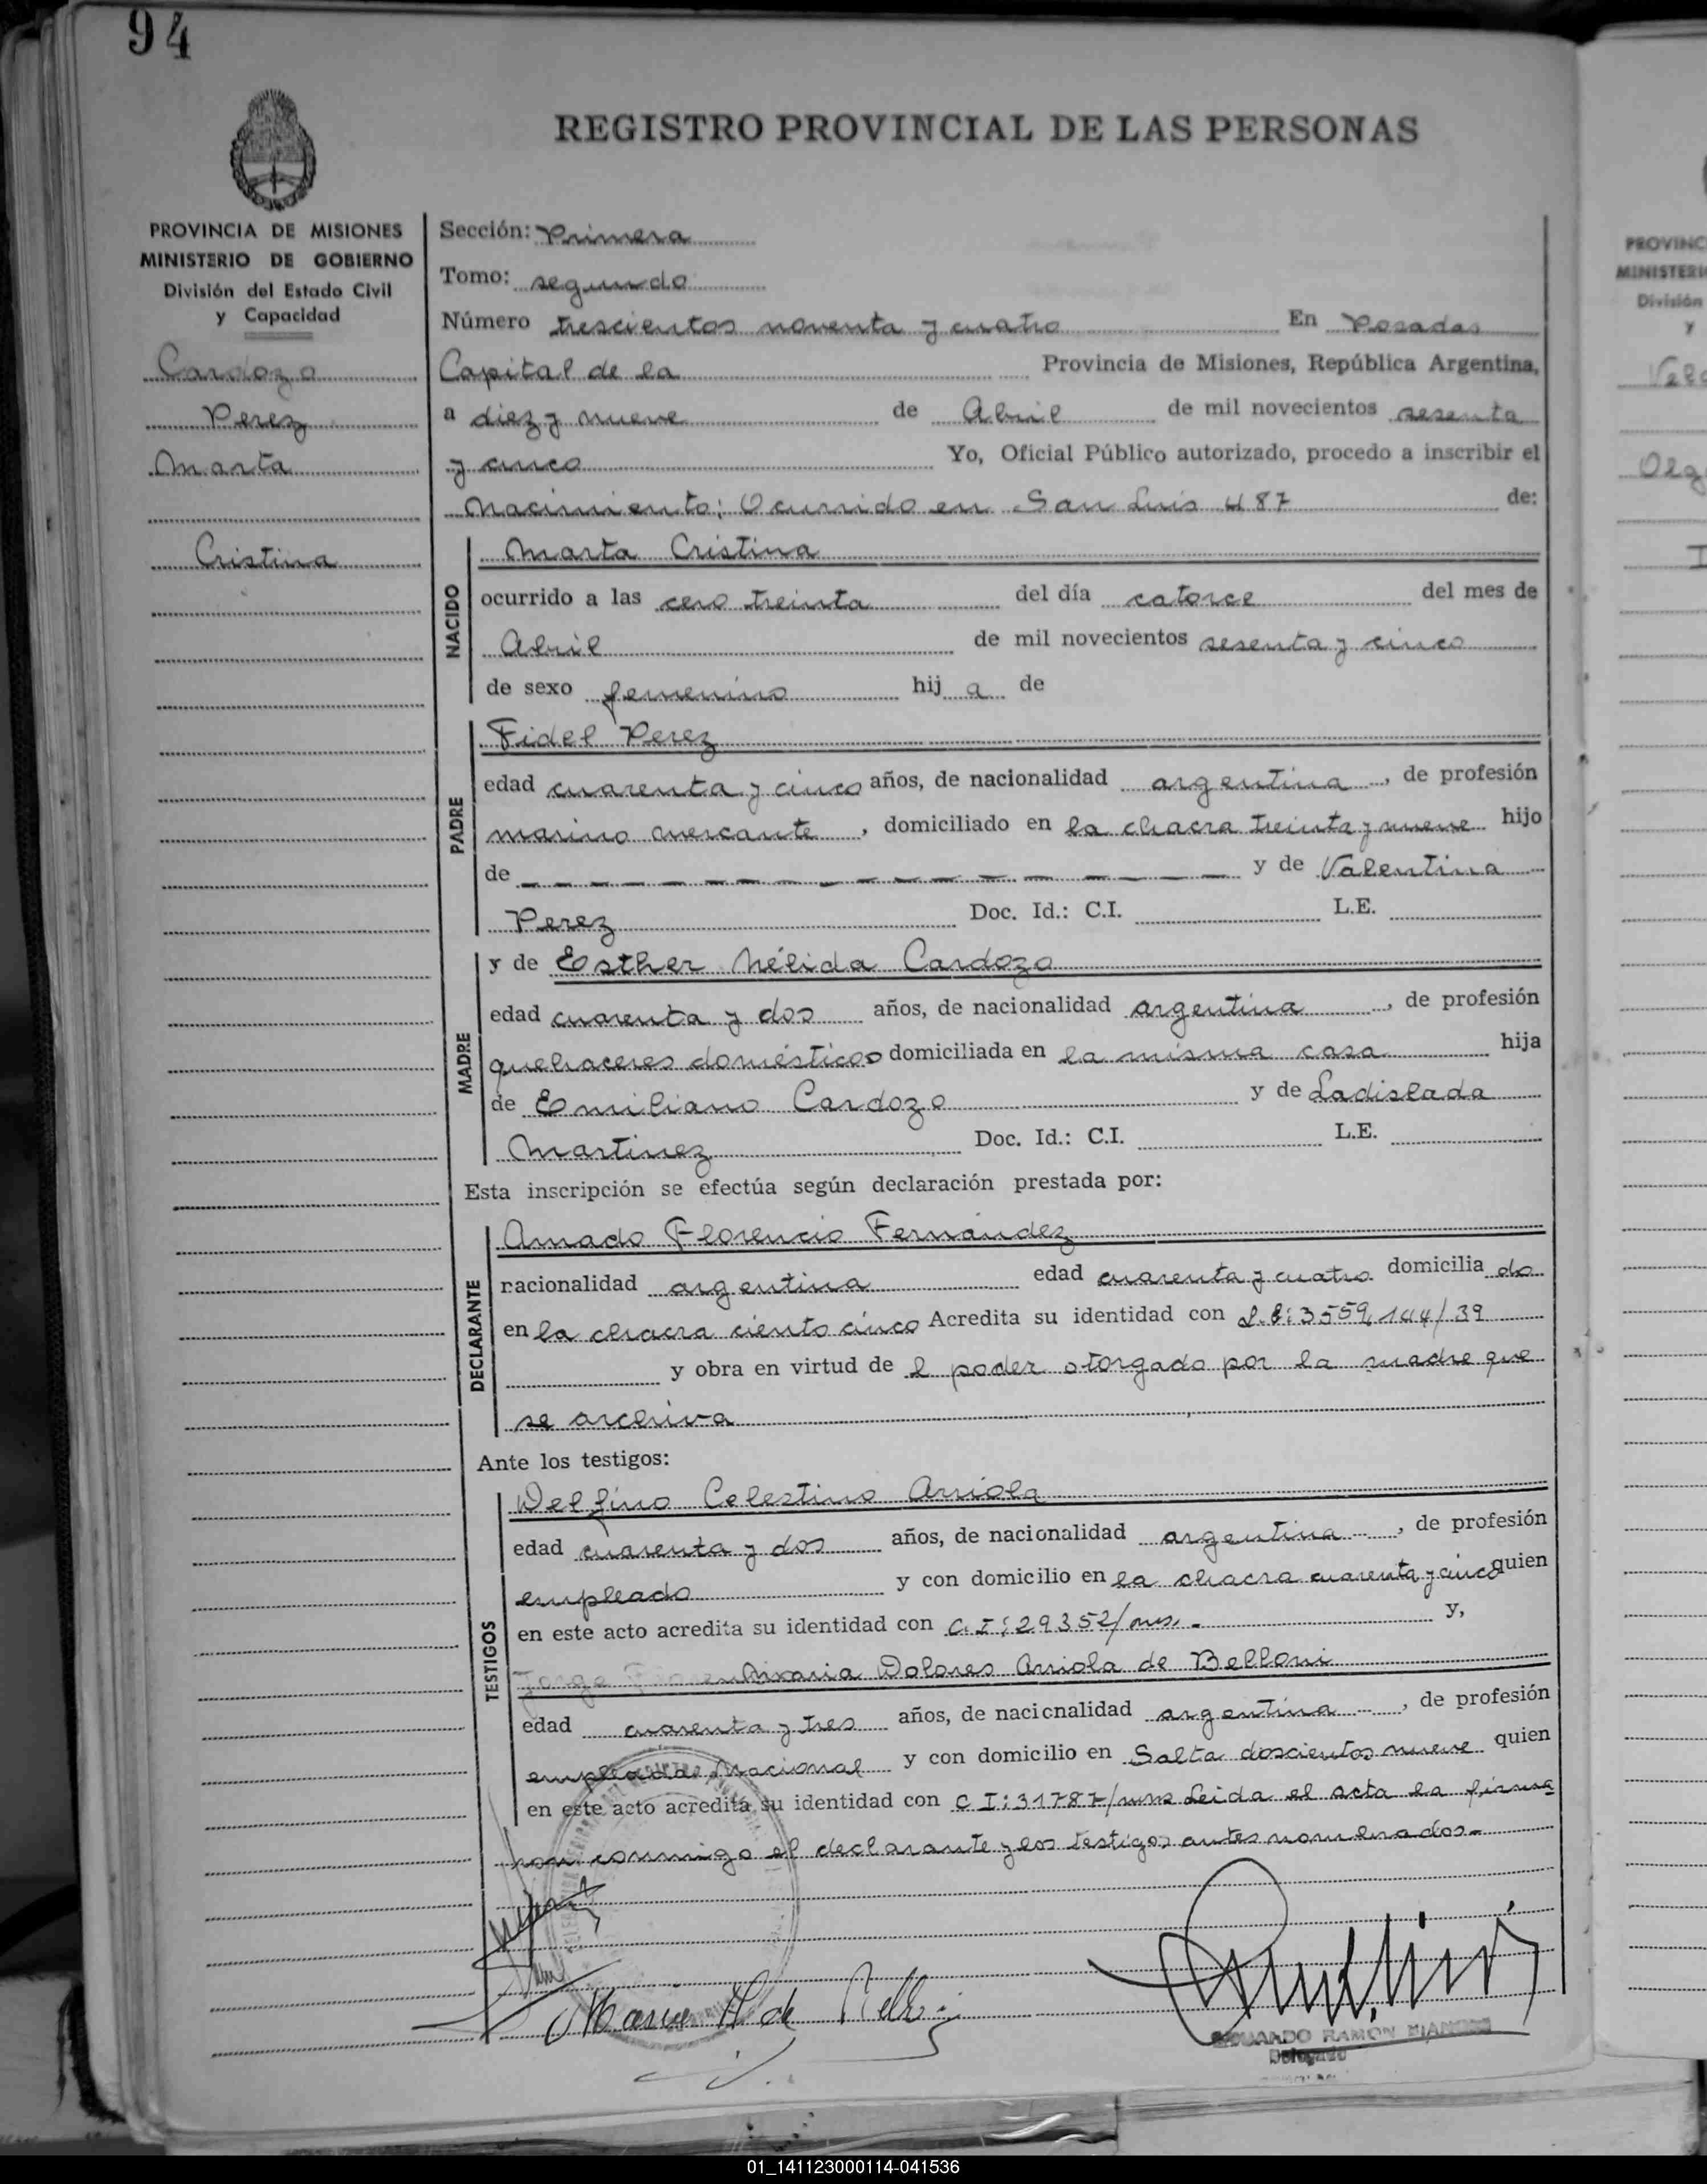 94
REGISTRO PROVINCIAL DE LAS PERSONAS
PROVINCIA DE MISIONES
MINISTERIO DE GOBIERNO
División del Estado Civil
y Capacidad
Cardozo
Perez
Marta
Cristina
Sección: Primera
Tomo: segundo
Número trescientos noventa y cuatro En Posadas
Capital de la Provincia de Misiones, República Argentina,
a diez y nueve de Abril de mil novecientos sesenta
y cinco Yo, Oficial Público autorizado, procedo a inscribir el
Nacimiento; Ocurrido en San Luis 487 de:
NACIDO
Marta Cristina
ocurrido a las cero treinta del día catorce del mes de
Abril de mil novecientos sesenta y cinco
de sexo femenino hij a de
PADRE
Fidel Perez
edad cuarenta y cinco años, de nacionalidad argentina, de profesión
marino mercante, domiciliado en la chacra treinta y nueve hijo
de — — — — — — — — — — — — — y de Valentina
Perez Doc. Id.: C.I. L.E.
MADRE
y de Esther Nélida Cardozo
edad cuarenta y dos años, de nacionalidad argentina, de profesión
quehaceres domésticos domiciliada en la misma casa hija
de Emiliano Cardozo y de Ladislada
Martinez Doc. Id.: C.I. L.E.
Esta inscripción se efectúa según declaración prestada por:
DECLARANTE
Amado Florencio Fernández
nacionalidad argentina edad cuarenta y cuatro domicilia do
en la chacra ciento cinco Acredita su identidad con L.E: 3559,144/39
y obra en virtud de l poder otorgado por la madre que
se archiva
Ante los testigos:
TESTIGOS
Delfino Celestino Arriola
edad cuarenta y dos años, de nacionalidad argentina, de profesión
empleado y con domicilio en la chacra cuarenta y cinco quien
en este acto acredita su identidad con C.I: 29352/mns.- y,
Jorge Maria Dolores Arriola de Belloni
edad cuarenta y tres años, de nacionalidad argentina, de profesión
empleada nacional y con domicilio en Salta doscientos nueve quien
en este acto acredita su identidad con C I: 31787/mns Leida el acta la firma
ron conmigo el declarante y los testigos antes nombrados.-
Maria A de Belloni
EDUARDO RAMON
Delegado
PROVINC
MINISTERI
División
y
01_141123000114-041536